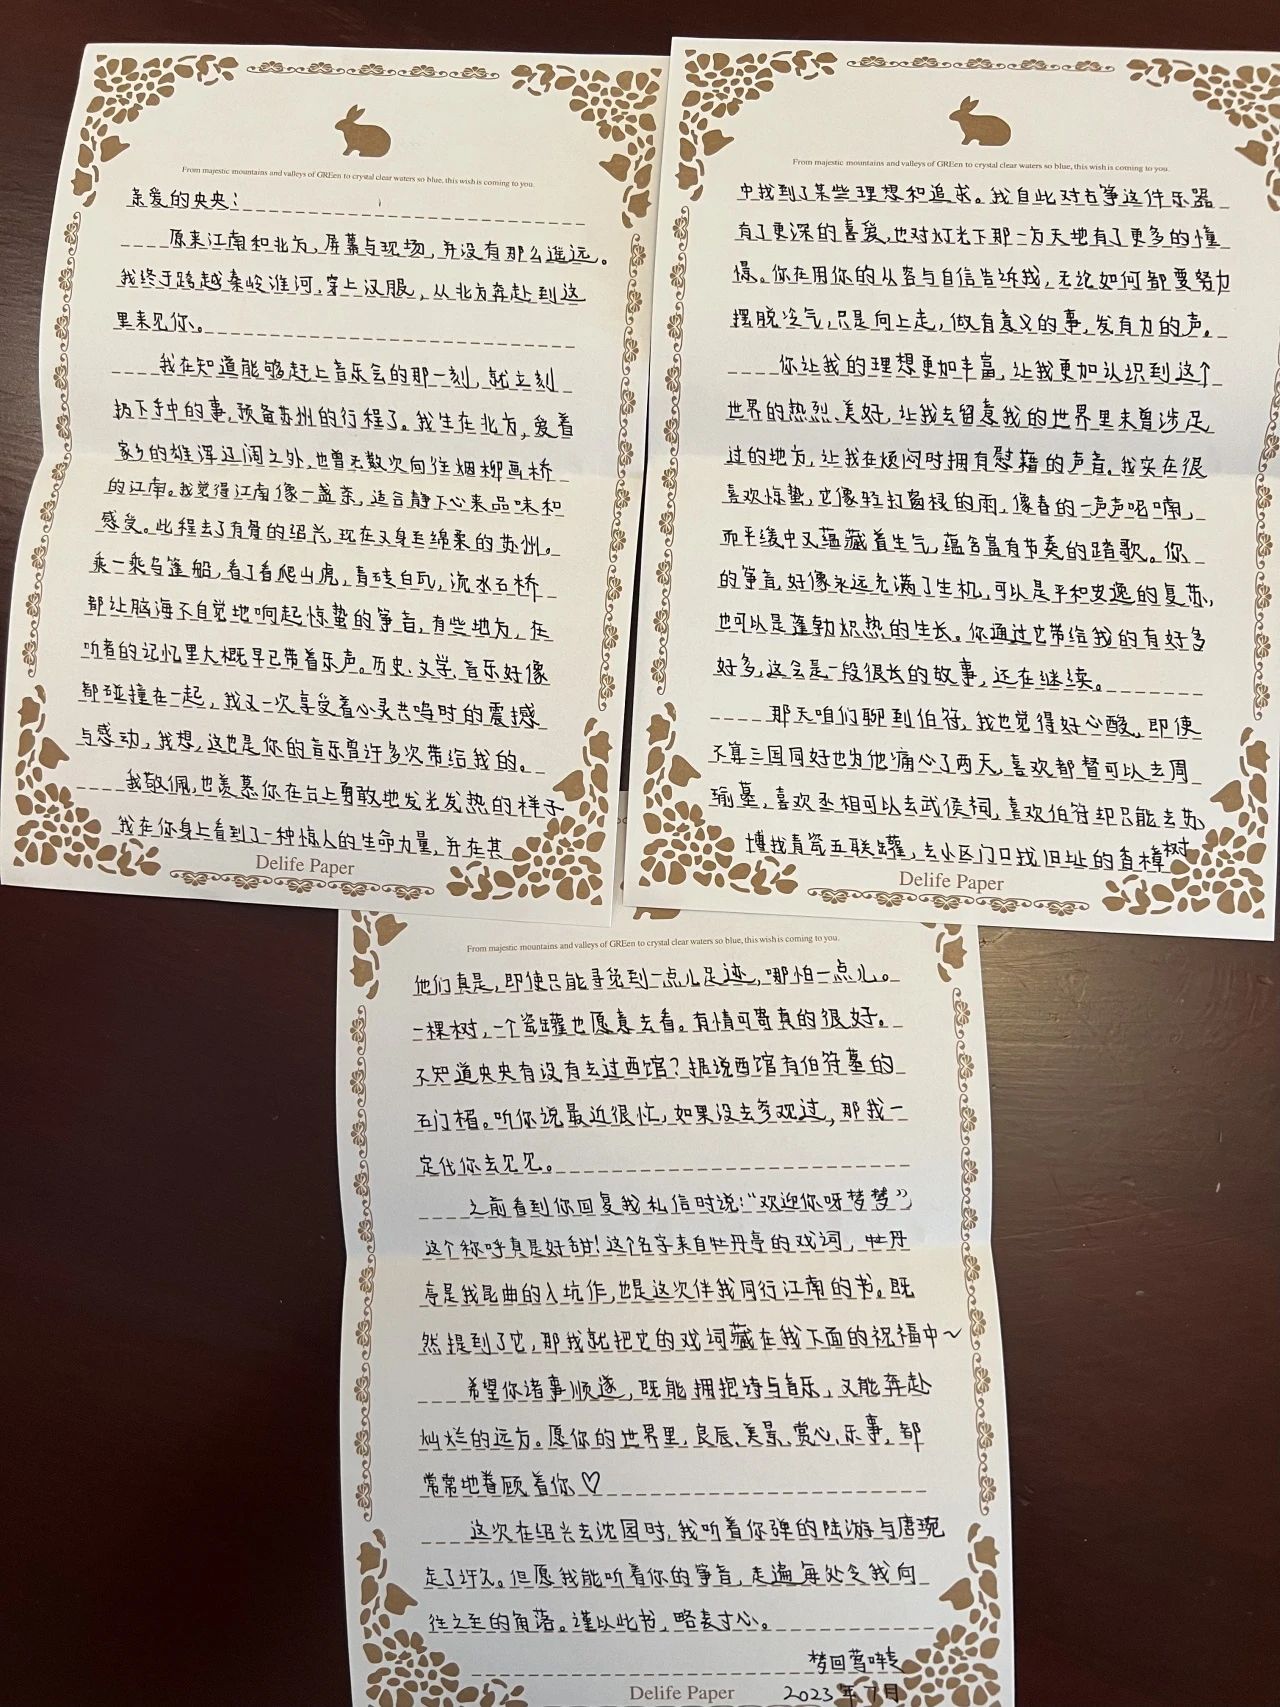 From majestic mountains and valleys of GREen to crystal clear waters so blue, this wish is coming to you.
亲爱的央央：
原来江南和北方，屏幕与现场，并没有那么遥远。
我终于跨越秦岭淮河，穿上汉服，从北方奔赴到这
里来见你。
我在知道能够赶上音乐会的那一刻，就立刻
扔下手中的事，预备苏州的行程了。我生在北方，爱着
家乡的雄浑辽阔之外，也曾无数次向往烟柳画桥
的江南。我觉得江南像一盏茶，适合静下心来品味和
感受。此程去了有骨的绍兴，现在又身至绵柔的苏州。
乘一乘乌篷船，看了看爬山虎，青砖白瓦，流水石桥
都让脑海不自觉地响起惊蛰的筝音，有些地方，在
听者的记忆里大概早已带着乐声。历史、文学、音乐好像
都碰撞在一起，我又一次享受着心灵共鸣时的震撼
与感动，我想，这也是你的音乐曾许多次带给我的。
我敬佩，也羡慕你在台上勇敢地发光发热的样子
我在你身上看到了一种惊人的生命力量，并在其
Delife Paper
From majestic mountains and valleys of GREen to crystal clear waters so blue, this wish is coming to you.
中找到了某些理想和追求。我自此对古筝这件乐器
有了更深的喜爱，也对灯光下那一方天地有了更多的憧
憬。你在用你的从容与自信告诉我，无论如何都要努力
摆脱冷气，只是向上走，做有意义的事，发有力的声。
你让我的理想更加丰富，让我更加认识到这个
世界的热烈、美好，让我去留意我的世界里未曾涉足
过的地方，让我在烦闷时拥有慰藉的声音。我实在很
喜欢惊蛰，它像轻打窗棂的雨，像春的一声声呢喃，
而平缓中又蕴藏着生气，蕴含富有节奏的踏歌。你
的筝音好像永远充满了生机，可以是平和安逸的复苏，
也可以是蓬勃炽热的生长。你通过它带给我的有好多
好多，这会是一段很长的故事，还在继续。
那天咱们聊到伯符，我也觉得好心酸，即使
不算三国同好也为他痛心了两天，喜欢都督可以去周
瑜墓，喜欢丞相可以去武侯祠，喜欢伯符却只能去苏
博找青瓷五联罐，去小区门口找旧址的香樟树
Delife Paper
From majestic mountains and valleys of GREen to crystal clear waters so blue, this wish is coming to you.
他们真是，即使只能寻觅到一点儿足迹，哪怕一点儿。
一棵树，一个瓷罐也愿意去看。有情可寄真的很好。
不知道央央有没有去过西馆？据说西馆有伯符墓的
石门楣。听你说最近很忙，如果没去参观过，那我一
定代你去见见。
之前看到你回复我私信时说：“欢迎你呀梦梦”
这个称呼真是好甜！这个名字来自牡丹亭的戏词，牡丹
亭是我昆曲的入坑作，也是这次伴我同行江南的书。既
然提到了它，那我就把它的戏词藏在我下面的祝福中～
希望你诸事顺遂，既能拥抱诗与音乐，又能奔赴
灿烂的远方。愿你的世界里，良辰、美景、赏心、乐事，都
常常地眷顾着你♡
这次在绍兴去沈园时，我听着你弹的陆游与唐琬
走了许久。但愿我能听着你的筝音，走遍每处令我向
往之至的角落。谨以此书，略表寸心。
梦回莺啭
2023年7月
Delife Paper